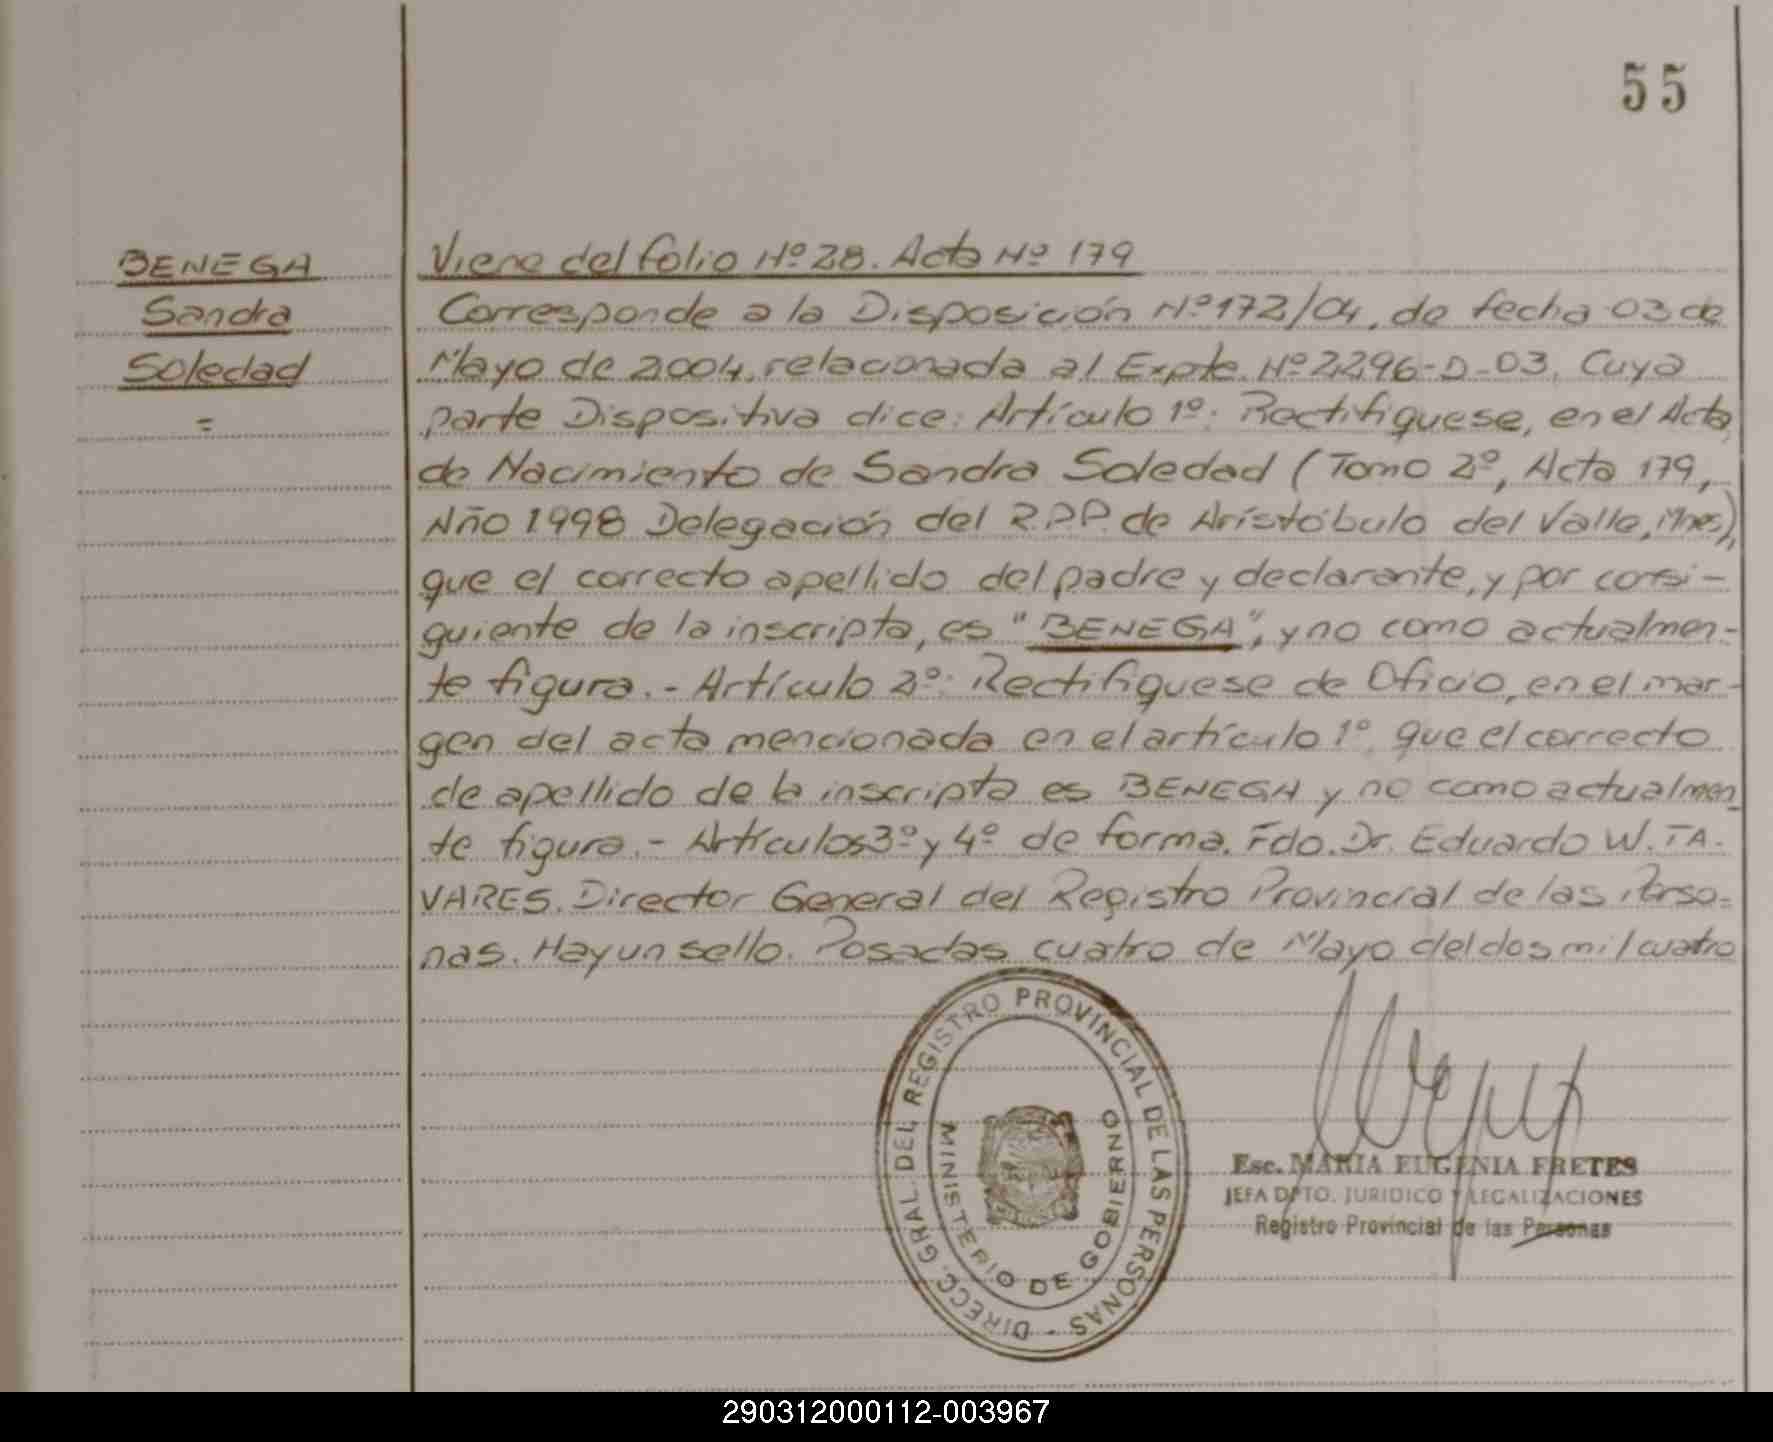 55
BENEGA
Sandra
Soledad
=
Viene del folio Nº 28. Acta Nº 179
Corresponde a la Disposición Nº 172/04, de fecha 03 de
Mayo de 2004, relacionada al Expte. Nº 2296-D-03. Cuya
parte Dispositiva dice: Artículo 1º: Rectifiquese, en el Acta
de Nacimiento de Sandra Soledad (Tomo 2º, Acta 179,
Año 1998 Delegación del R.P.P. de Aristóbulo del Valle, Mnes),
que el correcto apellido del padre y declarante, y por consi-
guiente de la inscripta, es "BENEGA", y no como actualmen-
te figura. - Artículo 2º: Rectifiquese de Oficio, en el mar-
gen del acta mencionada en el artículo 1º que el correcto
de apellido de la inscripta es BENEGA y no como actualmen
te figura. - Artículos 3º y 4º de forma. Fdo. Dr. Eduardo W. TA-
VARES. Director General del Registro Provincial de las Perso-
nas. Hay un sello. Posadas cuatro de Mayo del dos mil cuatro
DIRECC. GRAL. DEL REGISTRO PROVINCIAL DE LAS PERSONAS -
MINISTERIO DE GOBIERNO
Esc. MARIA EUGENIA FRETES
JEFA DPTO. JURIDICO Y LEGALIZACIONES
Registro Provincial de las Personas
290312000112-003967